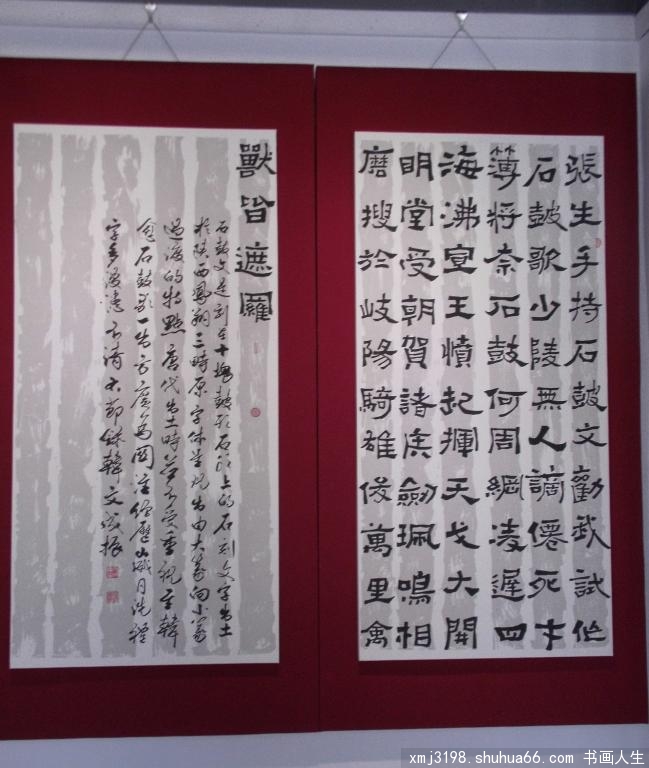 張生手持石皷文勸我試作
石皷歌少陵無人謫僊死才
薄將奈石鼓何周綱凌遲四
海沸宣王憤起揮天戈大開
明堂受朝賀諸侯劍珮鳴相
磨搜於岐陽騎雄俊萬里禽
獸皆遮羅
石鼓文是刻在十塊鼓形石頭上的石刻文字出土
於陝西鳳翔三畤原字体呈現出由大篆向小篆
過渡的特點唐代出土時並不受重視至韓
愈石鼓歌一出方廣為關注經歷歲月洗禮
字多漫漶不清 節錄韓文
xmj3198.shuhua66.com 书画人生